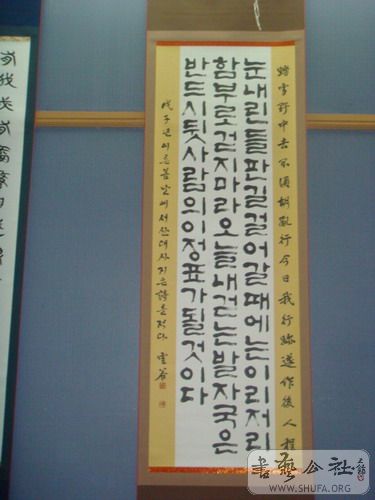 踏雪野中去不須胡亂行今日我行跡遂作後人程
눈내린들판길걸어갈때에는이리저리
함부로걷지마라오늘내걷는발자국은
반드시뒷사람의이정표가될것이다
戊子년이른봄날에서산대사지은詩를적다 雲谷
書藝公社
WWW.SHUFA.ORG